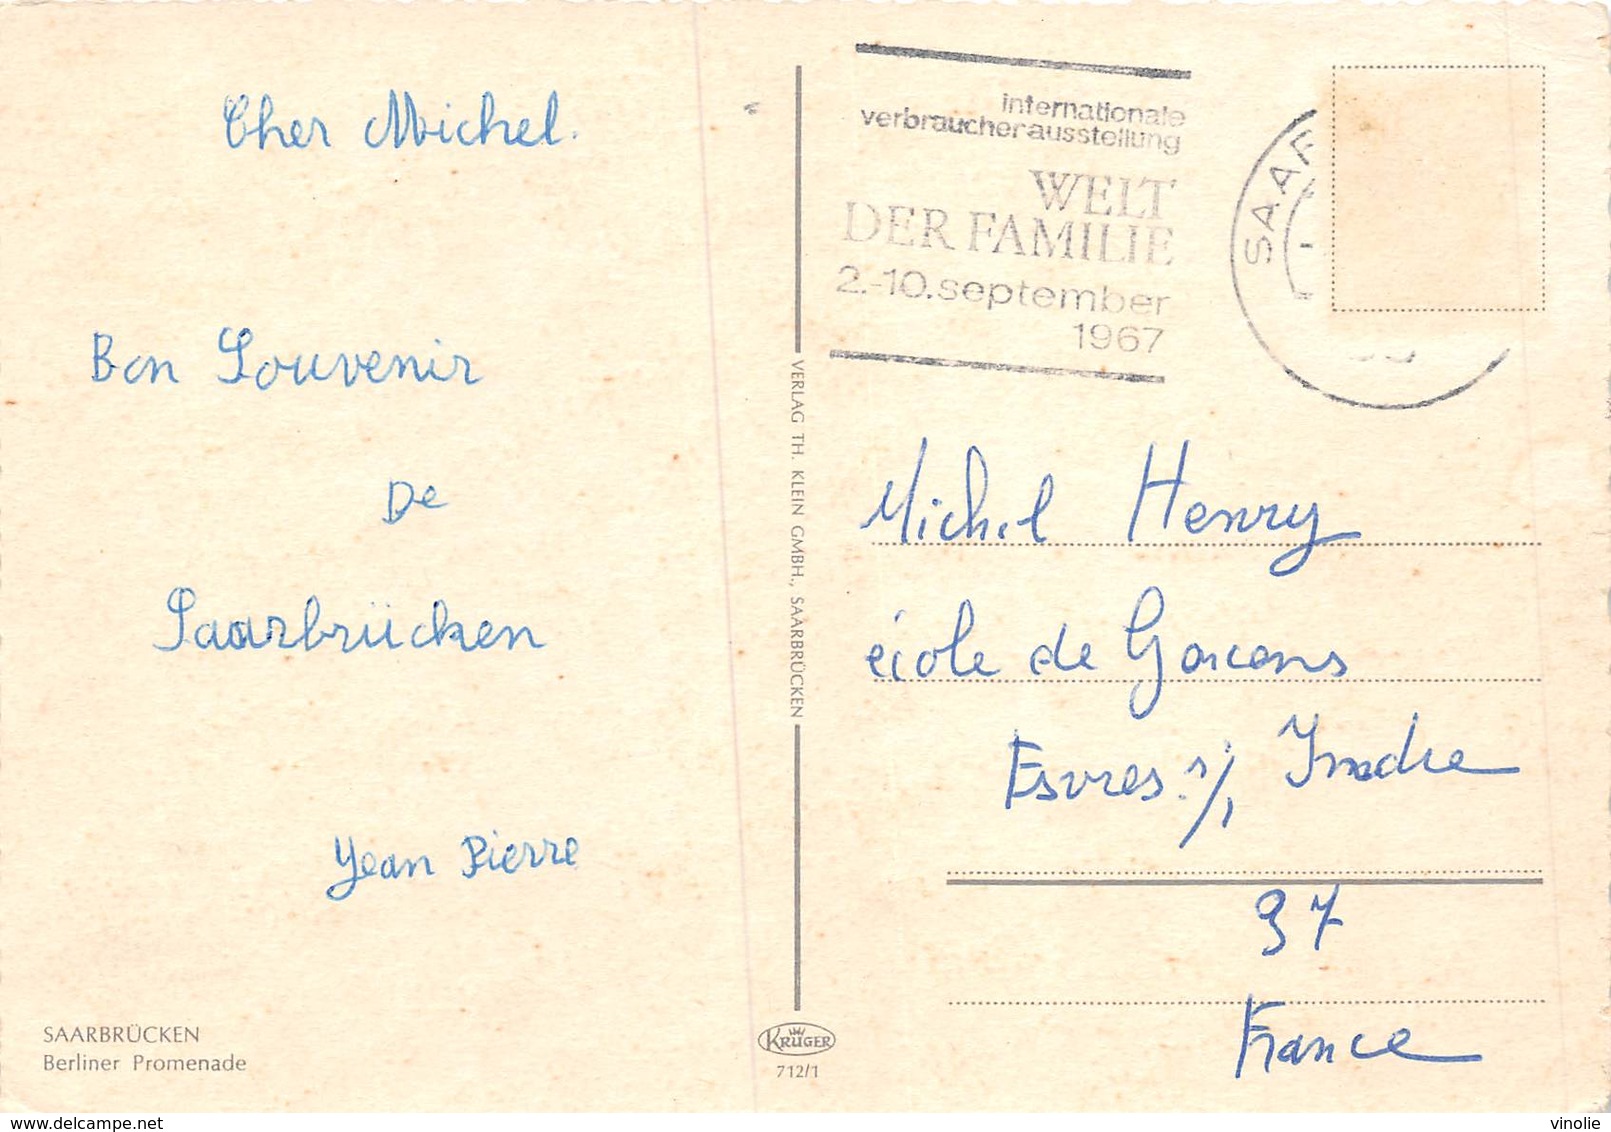 Cher Michel.
Bon Souvenir
De
Saarbrücken
Jean Pierre
SAARBRÜCKEN
Berliner Promenade
VERLAG TH. KLEIN GMBH., SAARBRÜCKEN
KRÜGER
712/1
internationale
verbraucherausstellung
WELT
DER FAMILIE
2.-10.september
1967
SAAR
Michel Henry
école de
Esvres s/, Indre
37
France
delcampe.net
vinolie